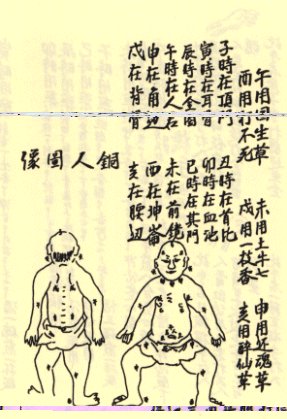 午用回生草 未用土牛七 申用还魂草
酉用打不死 戌用一枝香 亥用醉仙草
子時在頂門 丑時在首比
寅時在耳 卯時在血池
辰時在金 巳時在其門
午時在人 未在前
申在角 酉在坤崙
戌在背骨 亥在腰
銅人圖像